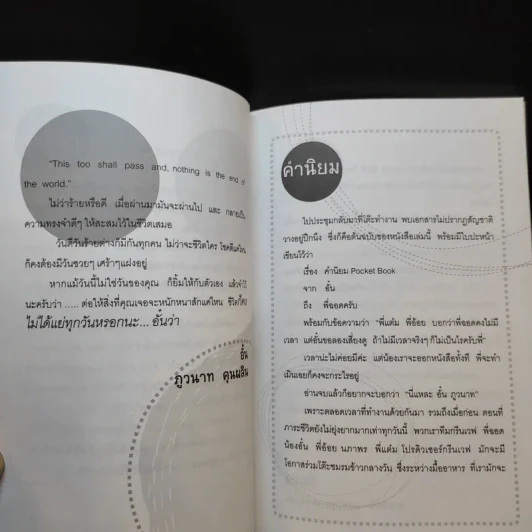 "This too shall pass and, nothing is the end of
the world."
ไม่ว่าร้ายหรือดี เมื่อผ่านมามันจะผ่านไป และ กลายเป็น
ความทรงจำดีๆ ให้สะสมไว้ในชีวิตเสมอ
วันดีวันร้ายต่างก็มีกันทุกคน ไม่ว่าจะชีวิตใคร โชคดีแค่ไหน
ก็คงต้องมีวันซวยๆ เศร้าๆแฝงอยู่
หากแม้วันนี้ไม่ใช่วันของคุณ ก็ยิ้มให้กับตัวเอง แล้วจำไว้
นะครับว่า ..... ต่อให้สิ่งที่คุณเจอจะหนักหนาสักแค่ไหน ชีวิตก็คง
ไม่ได้แย่ทุกวันหรอกนะ... อั๋นว่า
อั๋น
ภูวนาท คุนผลิน
คำนิยม
ไปประชุมกลับมาที่โต๊ะทำงาน พบเอกสารไม่ปรากฏสัญชาติ
วางอยู่ปึกนึง ซึ่งก็คือต้นฉบับของหนังสือเล่มนี้ พร้อมมีใบปะหน้า
เขียนไว้ว่า
เรื่อง คำนิยม Pocket Book
จาก อั๋น
ถึง พี่ออดครับ
พร้อมกับข้อความว่า "พี่แต๋ม พี่อ้อย บอกว่าพี่ออดคงไม่มี
เวลา แต่อั๋นขอลองเสี่ยงดู ถ้าไม่มีเวลาจริงๆ ก็ไม่เป็นไรครับพี่"
เวลาน่ะไม่ค่อยมีค่ะ แต่น้องเราจะออกหนังสือทั้งที พี่จะทำ
เมินเฉยก็คงจะกระไรอยู่
อ่านจบแล้วก็อยากจะบอกว่า "นี่แหละ อั๋น ภูวนาท"
เพราะตลอดเวลาที่ทำงานด้วยกันมา รวมถึงเมื่อก่อน ตอนที่
ภาระชีวิตยังไม่ยุ่งยากมากเท่าทุกวันนี้ พวกเราทีมกรีนเวฟ พี่ออด
น้องอั๋น พี่อ้อย นภาพร พี่แต๋ม โปรดิวเซอร์กรีนเวฟ มักจะมี
โอกาสร่วมโต๊ะชมรมข้าวกลางวัน ซึ่งระหว่างมื้ออาหาร ที่เรามักจะ